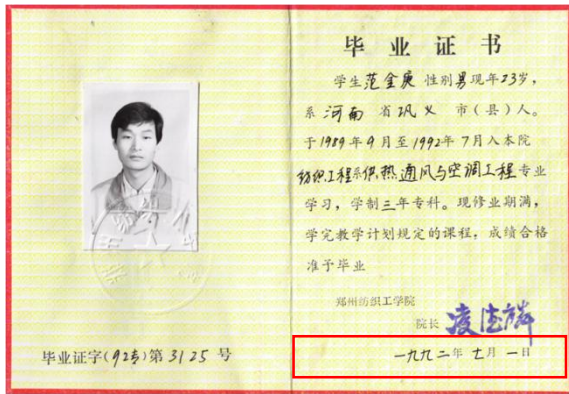 毕业证书
学生范金庚 性别男现年23岁，
系河南省巩义市（县）人。
于1989年9月至1992年7月入本院
纺织工程系供热通风与空调工程专业
学习，学制三年专科。现修业期满，
学完教学计划规定的课程，成绩合格
准予毕业
郑州纺织工学院
院长 凌德麟
一九九二年七月一日
毕业证字(92专)第3125号